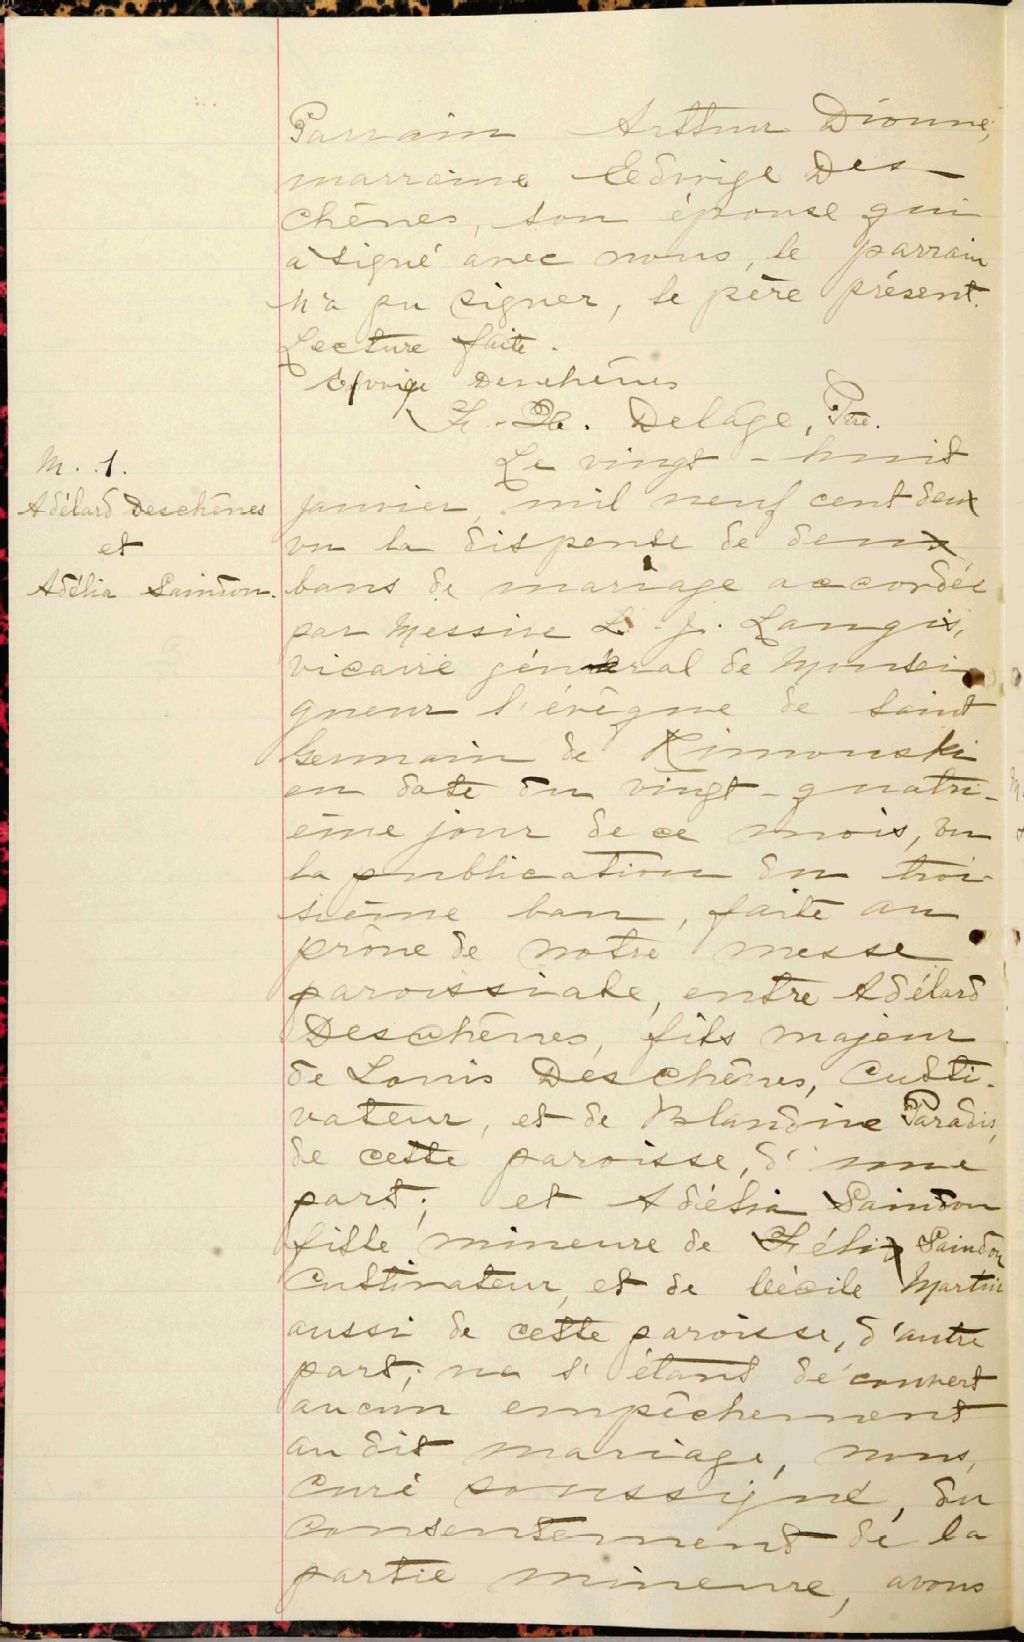 Parrain Arthur Dionne,
marraine Edwige Des
chênes, son épouse qui
a signé avec nous, le parrain
n'a pu signer, le père présent.
Lecture faite.
Edwige Deschênes
F.-X. Delâge, Ptre.
M. 1.
Adélard Deschênes
et
Adélia Saindon.
Le vingt-huit
janvier, mil neuf cent deux
vu la dispense de deux
bans de mariage accordée
par Messire L. J. Langis,
vicaire général de Monsei
gneur l'évêque de Saint
Germain de Rimouski
en date du vingt-quatri-
ème jour de ce mois, vu
la publication du troi-
sième ban, faite au
prône de notre messe
paroissiale, entre Adélard
Deschênes, fils majeur
de Louis Deschênes, culti-
vateur, et de Blandine Paradis,
de cette paroisse, d'une
part; et Adélia Saindon
fille mineure de Félix Saindon
cultivateur, et de Cécile Martin
aussi de cette paroisse, d'autre
part; ne s'étant découvert
aucun empêchement
au dit mariage, nous,
curé soussigné, du
consentement de la
partie mineure, avons